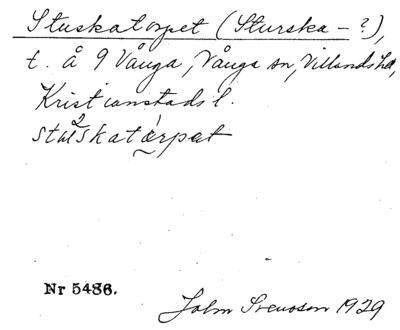 Stuskatorpet (Sturska - ?),
t. å 9 Vånga, Vånga sn, Villands hd,
Kristianstads l.
Nr 5486.
John Svensson 1929